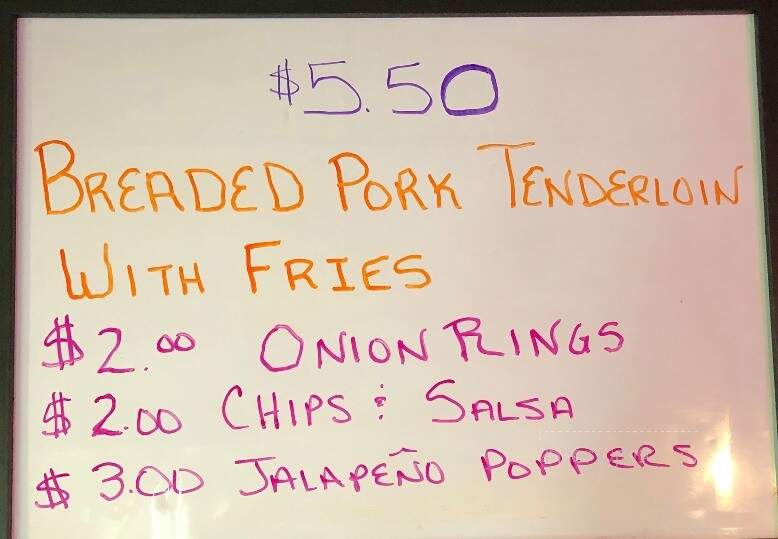 $5.50
BREADED PORK TENDERLOIN
WITH FRIES
$2.00 ONION RINGS
$2.00 CHIPS & SALSA
$3.00 JALAPEÑO POPPERS